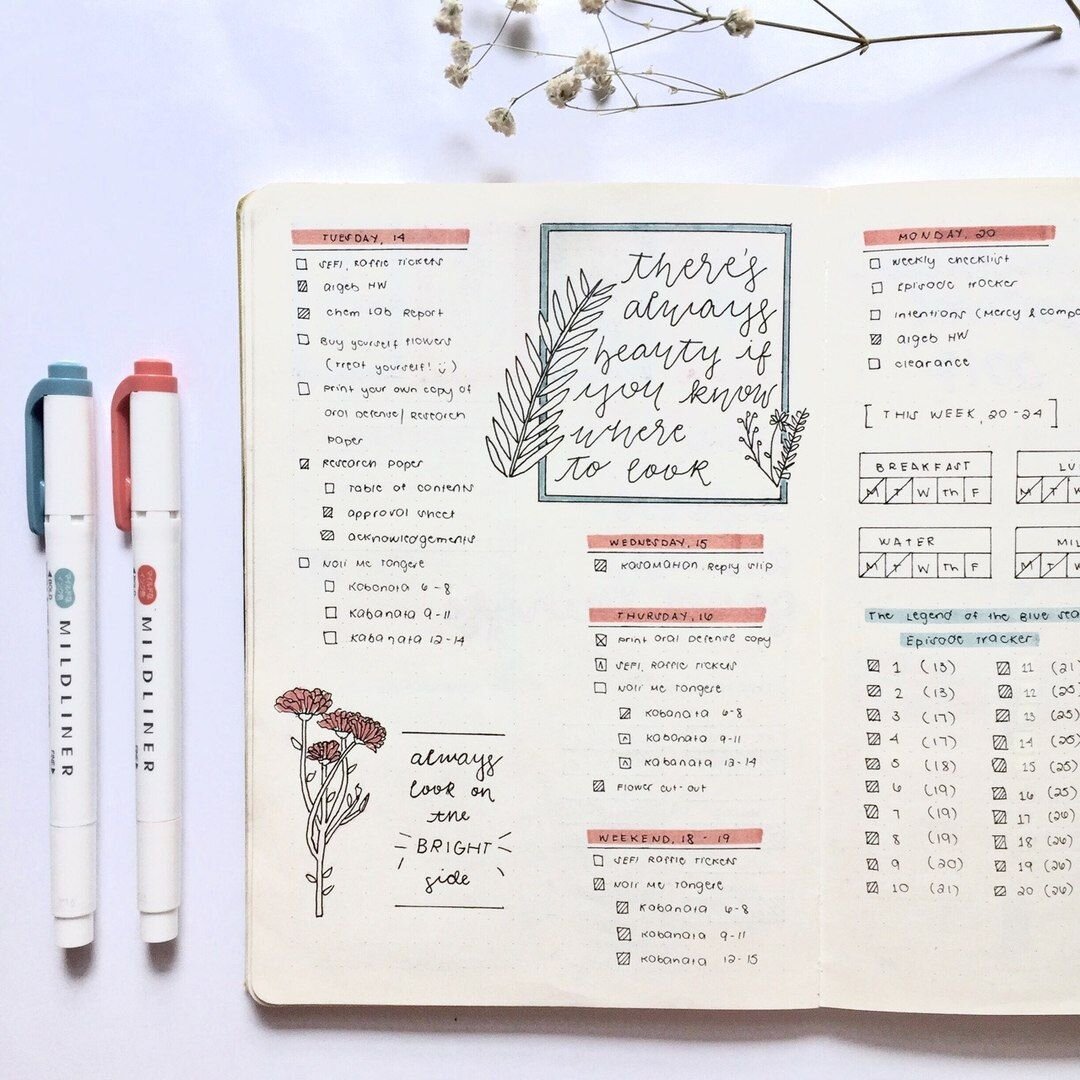 TUESDAY, 14
SEFI, Raffle Tickets
algeb HW
chem lab Report
Buy yourself flowers
(Treat yourself! :))
Print your own copy of
oral Defense/Research
paper
Research paper
Table of contents
approval sheet
acknowledgements
Noli Me Tangere
Kabanata 6-8
Kabanata 9-11
Kabanata 12-14
always
look on
the
BRIGHT
side
there's
always
beauty if
you know
where
to look
WEDNESDAY, 15
Kasamahan, Reply slip
THURSDAY, 16
print oral Defense copy
SEFI, Raffle Tickets
Noli Me Tangere
Kabanata 6-8
Kabanata 9-11
Kabanata 12-14
Flower cut-out
WEEKEND, 18 - 19
SEFI Raffle Tickets
Noli Me Tangere
Kabanata 6-8
Kabanata 9-11
Kabanata 12-15
MONDAY, 20
weekly checklist
Episode Tracker
Intentions (Mercy &
algeb HW
clearance
[THIS WEEK, 20-24]
BREAKFAST
M T W Th F
WATER
M T W Th F
M T W
M T W
The Legend of the Blue Sea
Episode Tracker
1 (13)
2 (13)
3 (17)
4 (17)
5 (18)
6 (19)
7 (19)
8 (19)
9 (20)
10 (21)
11 (21)
12 (25)
13 (25)
14 (25)
15 (25)
16 (25)
17 (26)
18 (26)
19 (26)
20 (26)
MILDLINER
MILDLINER